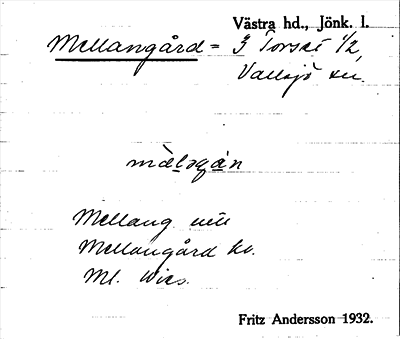 Västra hd., Jönk. l.
Mellangård = 3 Torset 1/2,
Vallsjö sn.
Mellang
Mellangård
Ml. Wies.
Fritz Andersson 1932.